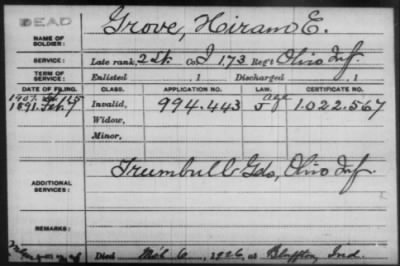 DEAD
NAME OF SOLDIER: Grove, Hiram E.
SERVICE: Late rank, 2 Lt. Co. I 173, Reg't Ohio Inf.
TERM OF SERVICE: Enlisted , 1 Discharged , 1
DATE OF FILING. CLASS. APPLICATION NO. LAW. CERTIFICATE NO.
1907 15
1891 7 Invalid, 994.443 age 1.022.567
Widow,
Minor,
ADDITIONAL SERVICES: Trumbull Gds, Ohio Inf.
REMARKS:
Died Mch 6, 1926, at Bluffton, Ind.